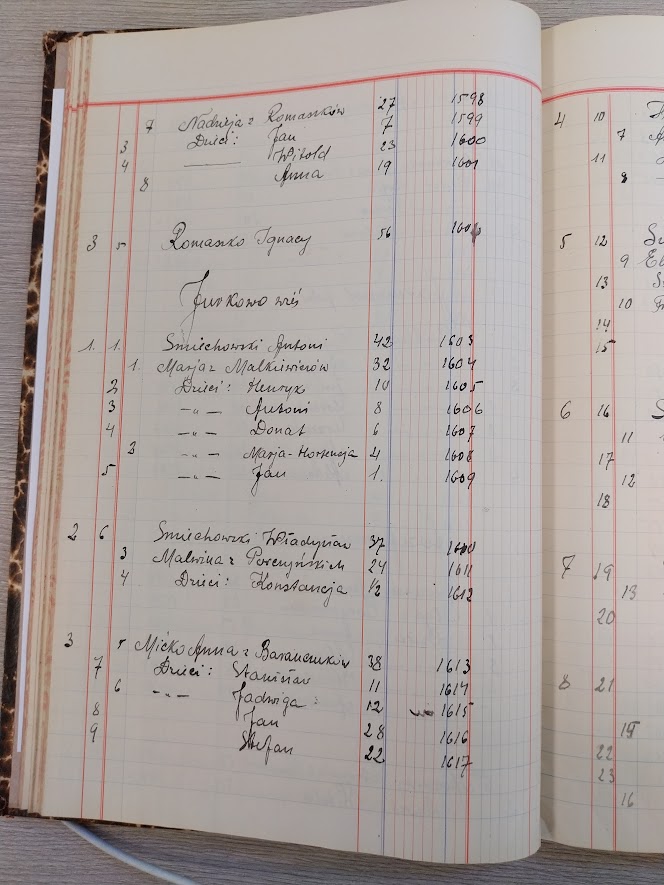 7 Nadzieja z Romaszków 27 1598
3 Dzieci: Jan 7 1599
4 Witold 23 1600
8 Anna 19 1601
3 5 Romaszko Ignacy 56 1602
Jurkowo wieś
1. 1. Śmiechowski Antoni 42 1603
1. Marja z Malkiewiczów 32 1604
2 Dzieci: Henryk 10 1605
3 -„- Antoni 8 1606
4 -„- Donat 6 1607
2 -„- Marja-Hortensja 4 1608
5 -„- Jan 1. 1609
2 6 Śmiechowski Władysław 37 1610
3 Malwina z 24 1611
4 Dzieci: Konstancja 1/2 1612
3 5 Micko Anna z 38 1613
7 Dzieci: Stanisław 11 1614
6 -„- Jadwiga 12 1615
8 Jan 28 1616
9 Stefan 22 1617
4 10
7
11
8
5 12
9
13
10
14
15
6 16
11
17
12
18
7 19
13
20
8 21
15
22
23
16